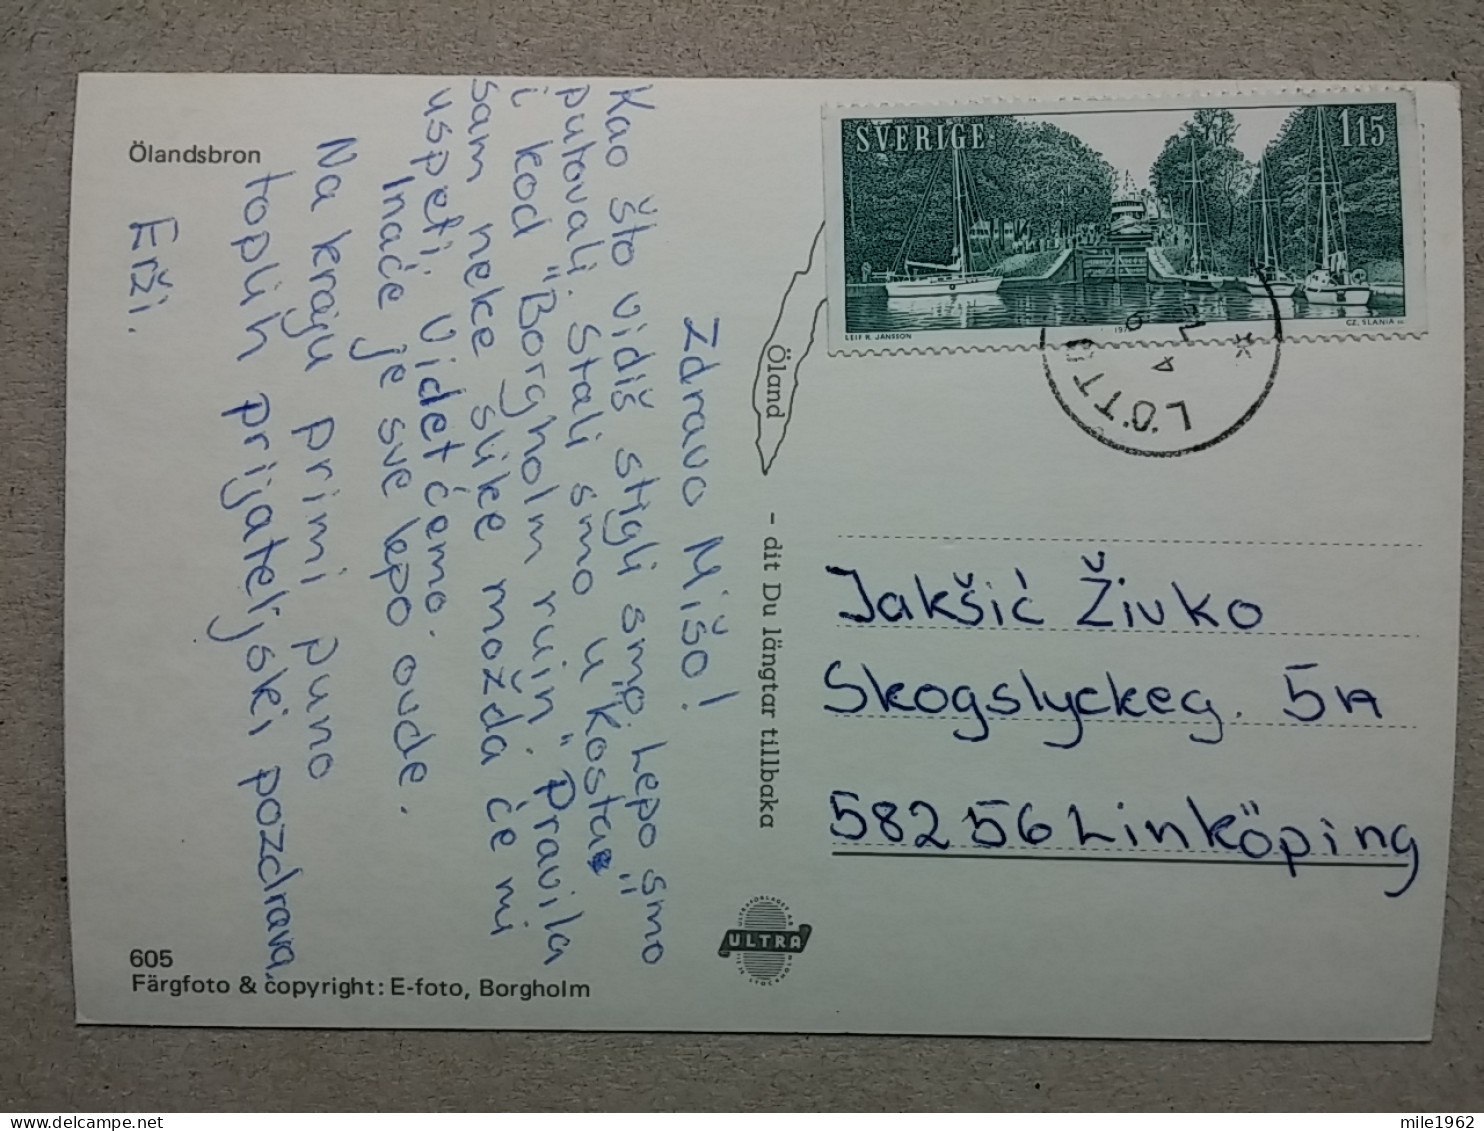 Ölandsbron
Zdravo Mišo!
Kao što vidiš stigli smo. Lepo smo
putovali. Stali smo u "Kosta"
i kod "Borgholm ruin". Pravila
sam neke slike možda će mi
uspeti. Videt ćemo.
Inače je sve lepo ovde.
Na kraju primi puno
toplih prijateljski pozdrava,
Erži.
605
Färgfoto & copyright: E-foto, Borgholm
Öland
- dit Du längtar tillbaka
ULTRA
SVERIGE 115
LEIF R. JANSSON
CZ. SLANIA sc.
LÖTTO
Jakšić Živko
Skogslyckeg. 5A
582 56 Linköping
mile1962